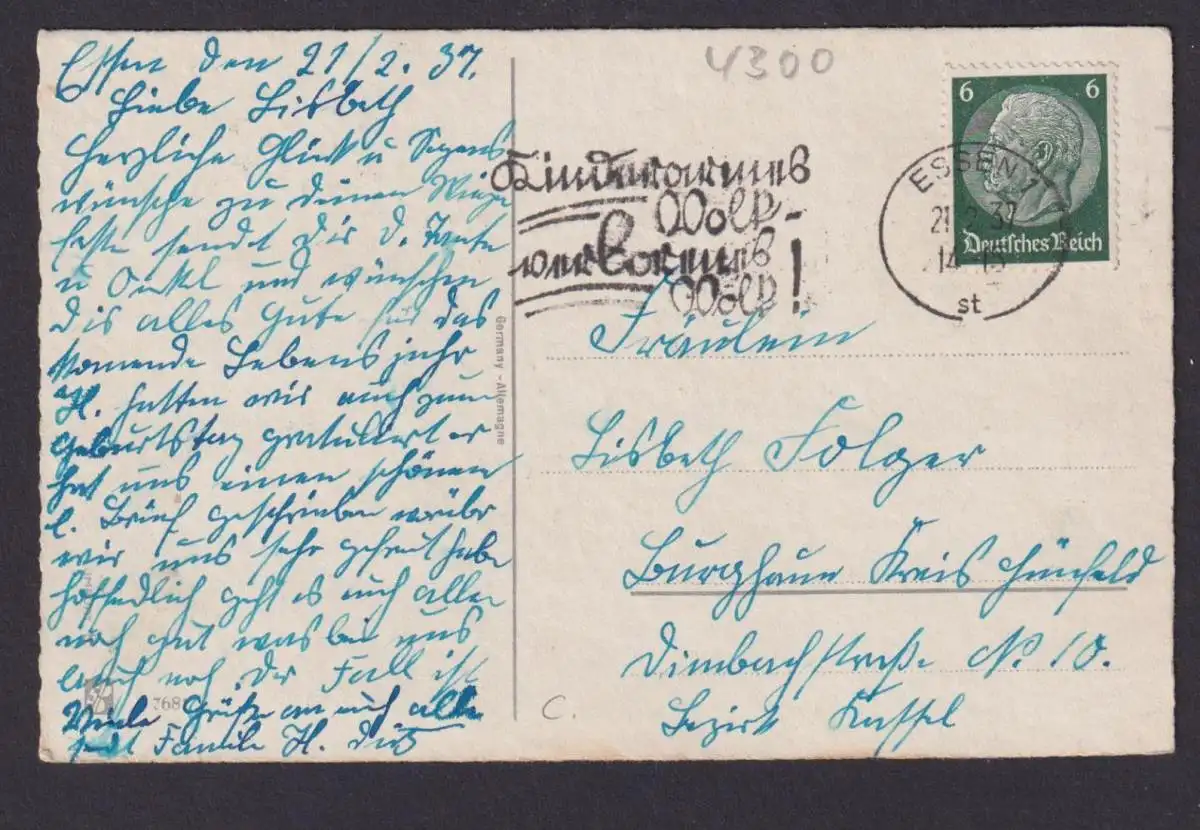 Essen den 21/2. 37.
Liebe Lisbeth
Herzliche Glück u Segens
wünsche zu deinen Wiegen
feste sendet Dir d. Tante
u Onkel und wünschen
dir alles gute für das
komende Lebensjahr
H. hatten wir auch zum
geburtstag gratuliert er
hat uns einen schönen
l. Brief geschrieben worüber
wir uns sehr gefreut habe
hoffendlich geht es euch allen
noch gut was bei uns
auch noch der Fall ist
Viele Grüße an euch alle
Familie H.
Germany - Allemagne
768
4300
Kinderarmes
Volk -
verlorenes
Volk!
ESSEN 1
21.2.37
14
st
6 6
Deutsches Reich
Fräulein
Lisbeth Folger
Burghaun Kreis Hünfeld
Dimbachstraße No 10.
Bezirk Kassel
C.